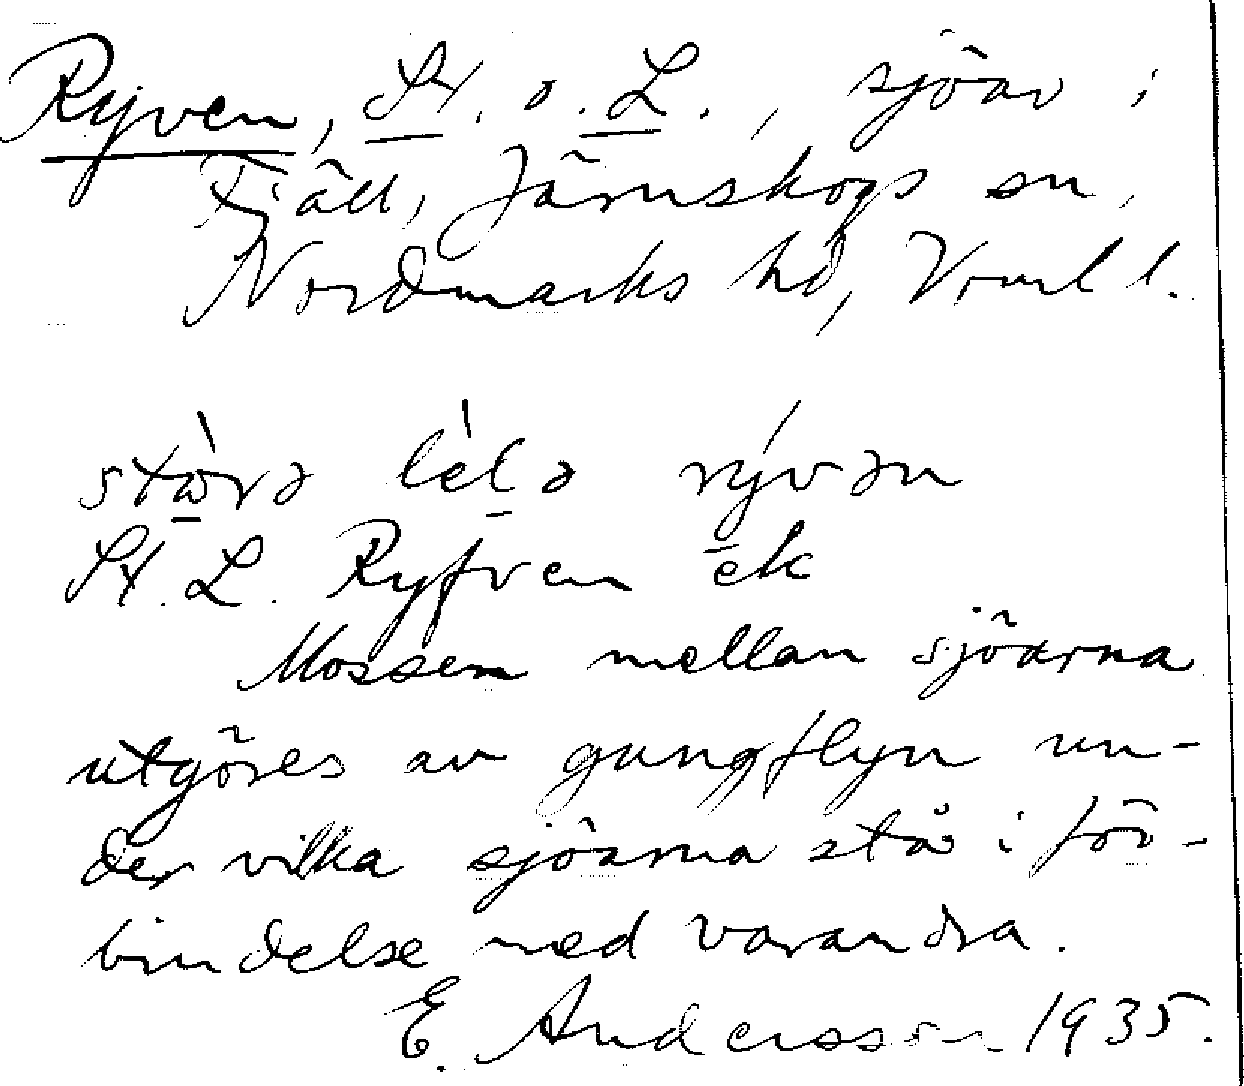 Ryven, St. o. L., sjöar i
Fjäll, Järnskogs sn,
Nordmarks hd, Vrml l.
stò̱rə lèḻə rývən
St. L. Ryfven ek
Mossen mellan sjöarna
utgöres av gungflyn un-
der vilka sjöarna stå i för-
bindelse med varandra.
E. Andersson 1935.